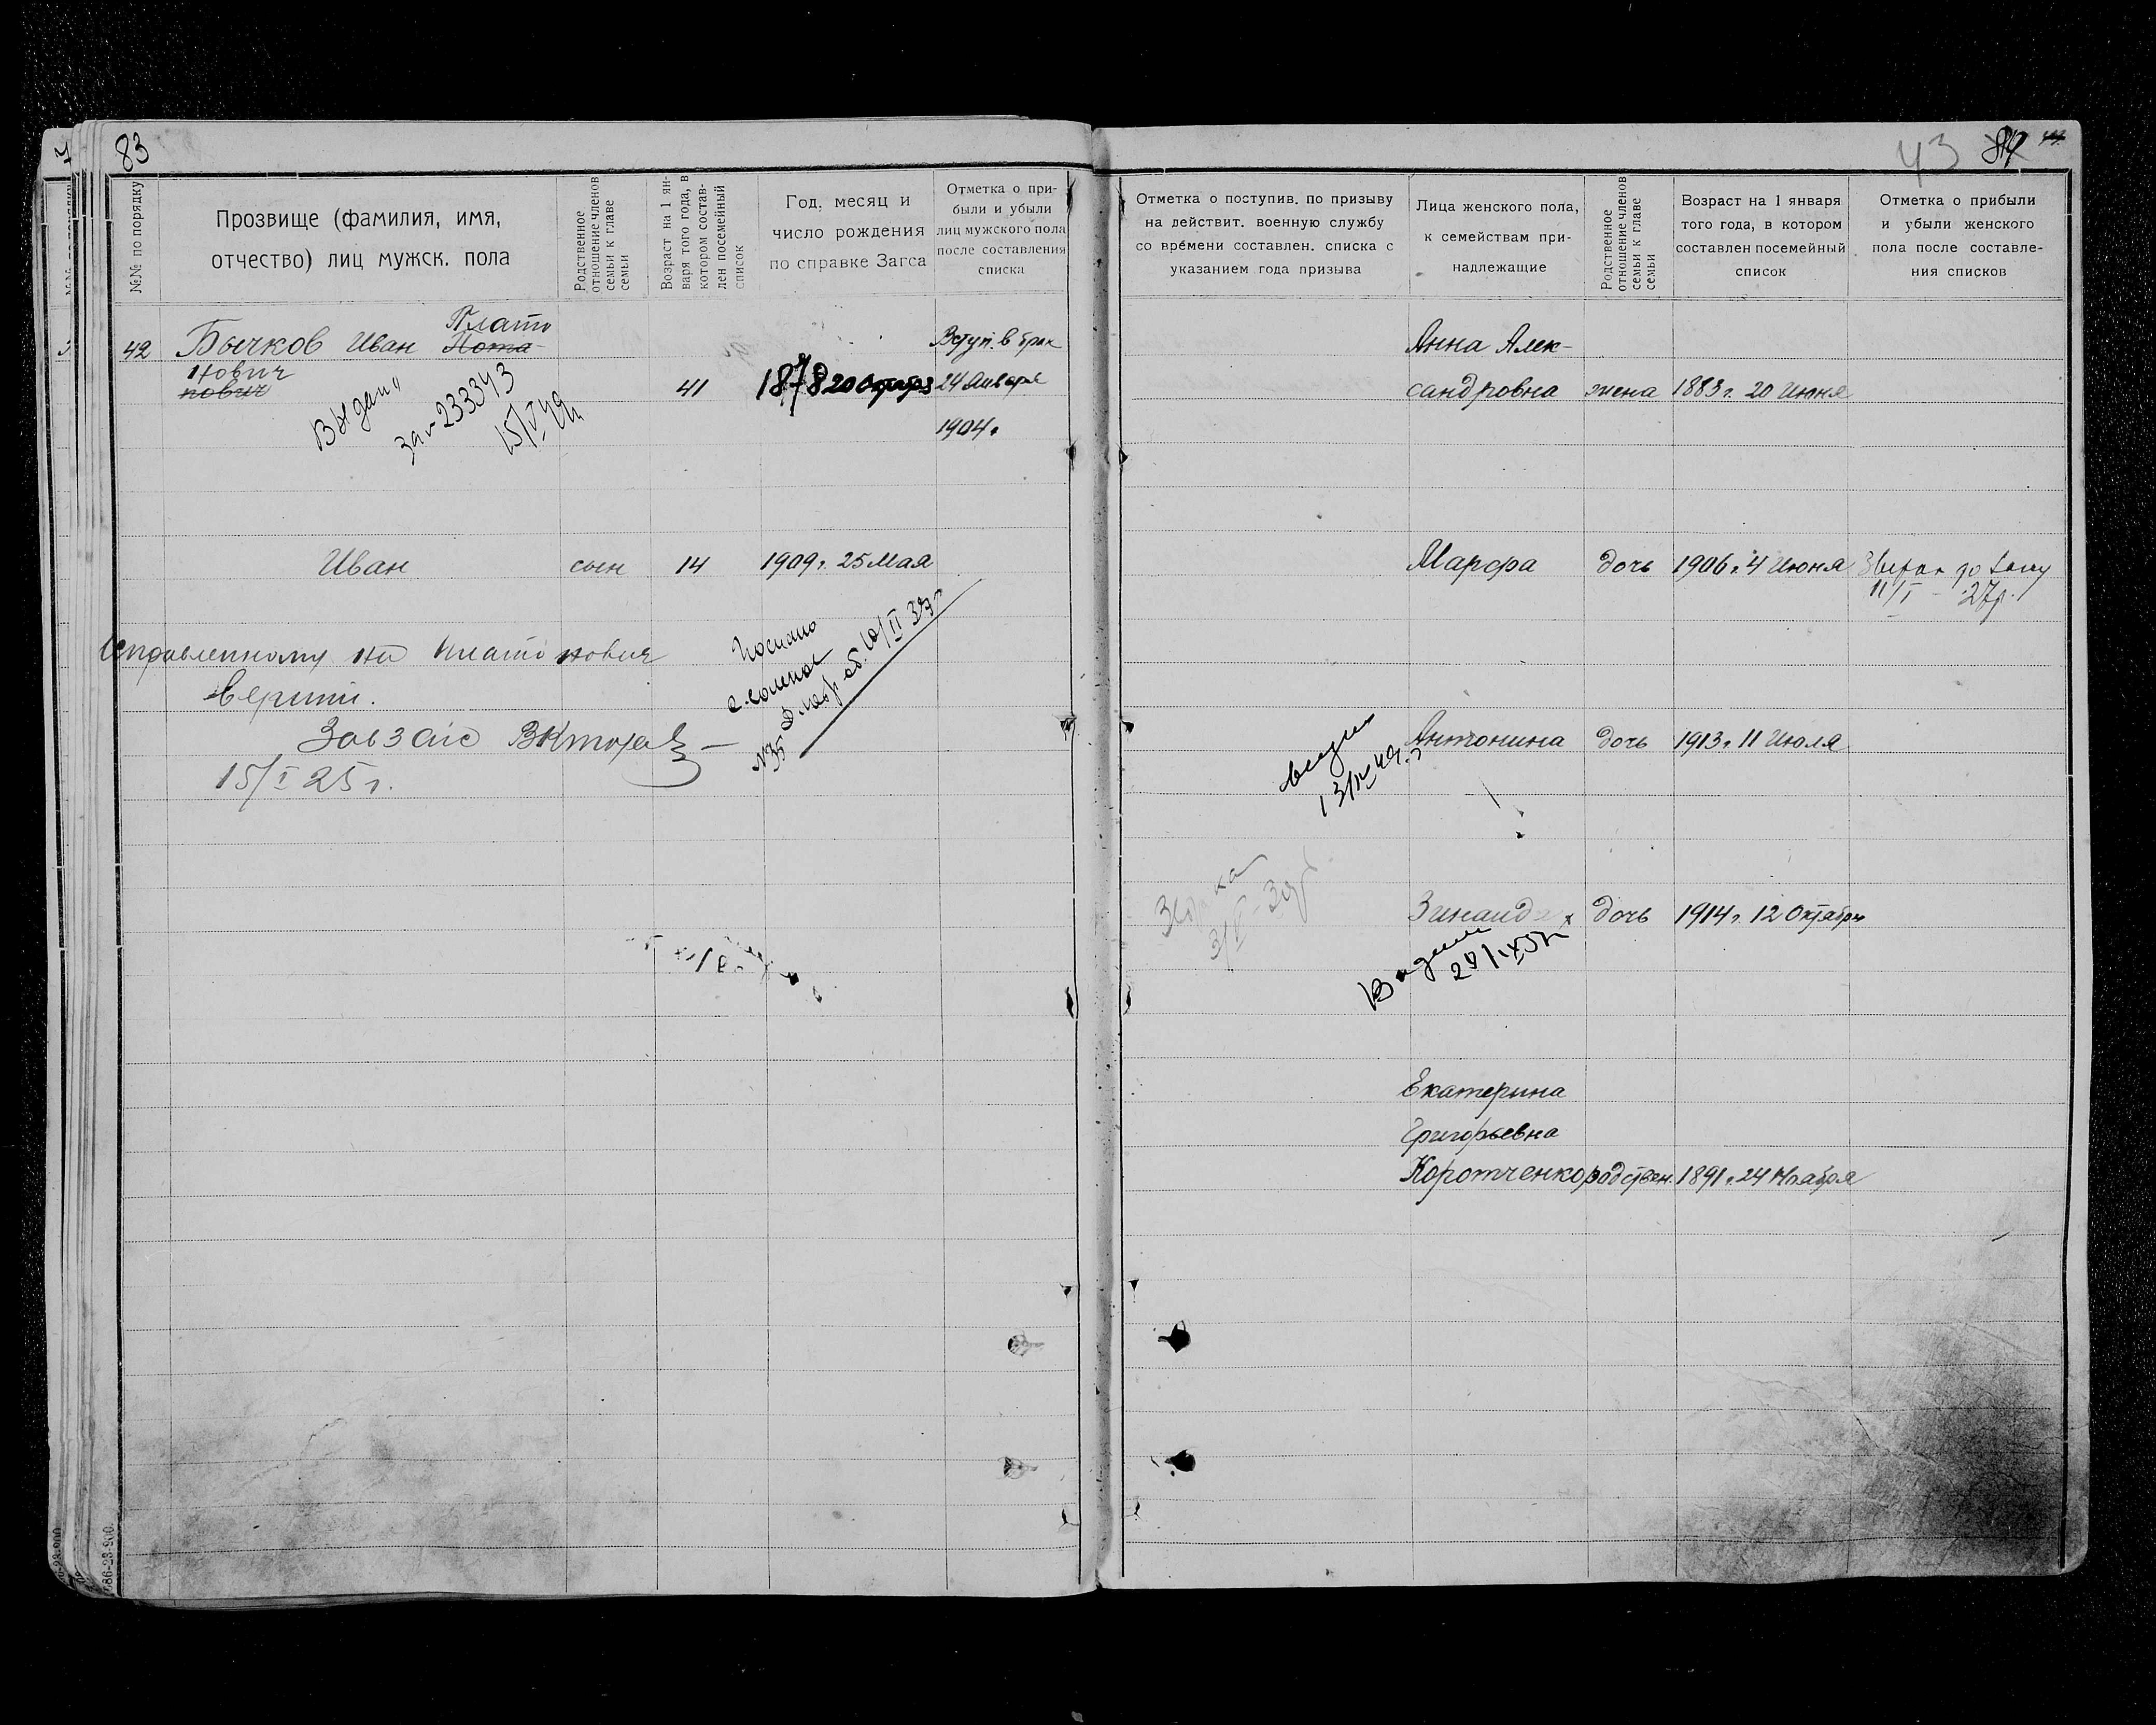 83
№№ по порядку
Прозвище (фамилия, имя,
отчество) лиц мужск. пола
Родственное
отношение членов
семьи к главе
семьи
Возраст на 1 ян-
варя того года, в
котором состав-
лен посемейный
список
Год, месяц и
число рождения
по справке Загса
Отметка о при-
были и убыли
лиц мужского пола
после составления
списка
Плато
42 Бычков Иван Пота-
нович
пович
41 1878 20
Вступ. в брак
24 Января
1904 г.
Выдан
233343
15/V 49
Иван сын 14 1909 г. 25 Мая
Исправленному на Платонович
верити.
Завзагс
15/I 25 г.
Послано
№35
10/II
586-23-900
43 84
Отметка о поступив. по призыву
на действит. военную службу
со времени составлен. списка с
указанием года призыва
Лица женского пола,
к семействам при-
надлежащие
Родственное
отношение членов
семьи к главе
семьи
Возраст на 1 января
того года, в котором
составлен посемейный
список
Отметка о прибыли
и убыли женского
пола после составле-
ния списков
Анна Алек-
сандровна жена 1883 г. 20 Июня
Марфа дочь 1906 г. 4 Июня
11/I - 27р.
Антонина дочь 1913 г. 11 Июля
13/IV 49
Зинаида дочь 1914 г. 12 Октября
Екатерина
Григорьевна
Коротченко родствен. 1891 г. 24 Ноября